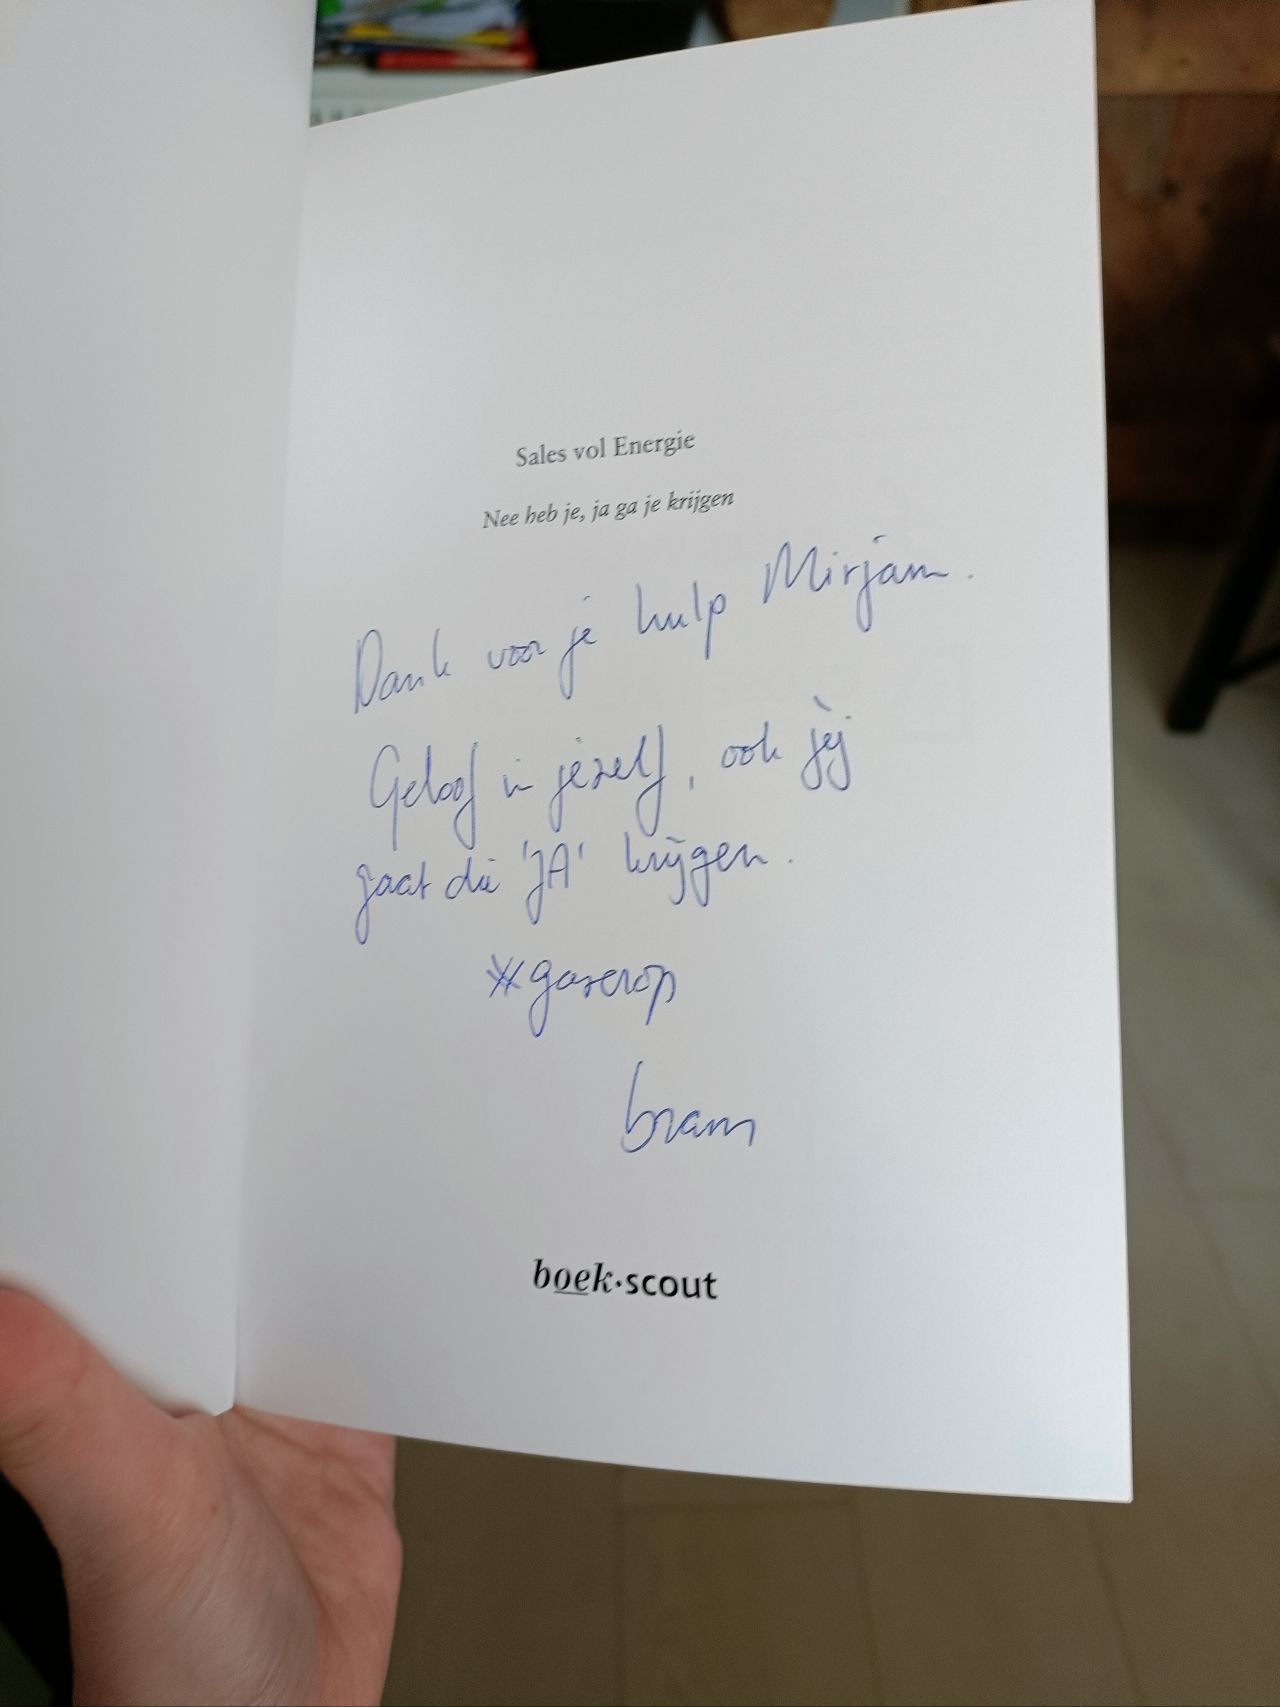 Sales vol Energie
Nee heb je, ja ga je krijgen
Dank voor je hulp Mirjam.
Geloof in jezelf, ook jij
gaat die 'JA' krijgen.
#gaserop
bram
boek·scout